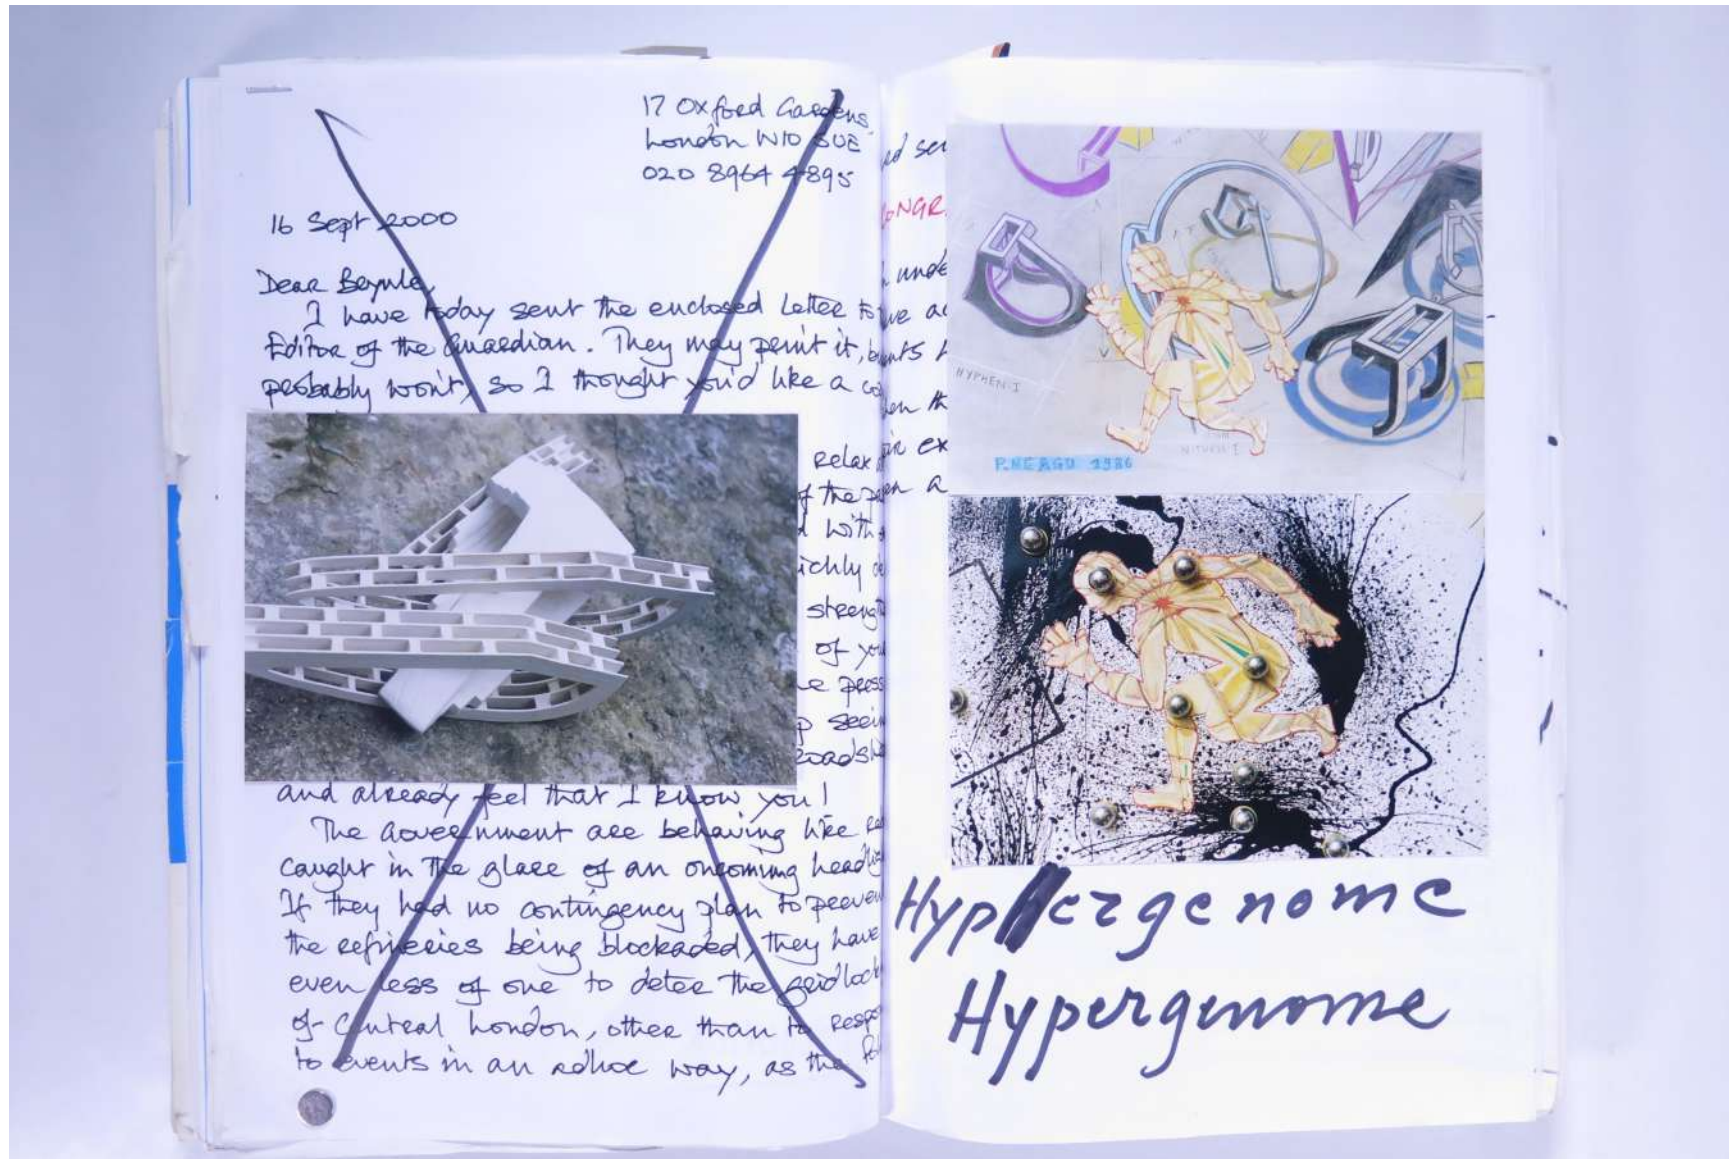 17 Oxford Gardens,
London W10 5UE
020 8964 4895
16 Sept 2000
Dear Beynle,
I have today sent the enclosed letter to
Editor of the Guardian. They may print it, but
probably won't, so I thought you'd like a
relax
of the
with
ichly
streng
of you
press
seein
roadsh
and already feel that I know you!
The Government are behaving like
caught in the glare of an oncoming headli
If they had no contingency plan to preven
the refineries being blockaded, they have
even less of one to deter the gridlock
of Central London, other than to respo
to events in an adhoc way, as the
ed sen
CONGR
unde
ve ac
nts h
en th
eir ex
en a
HYPHEN-I
NITUEN-I
P.NEAGU 1986
Hyphergenome
Hypergenome